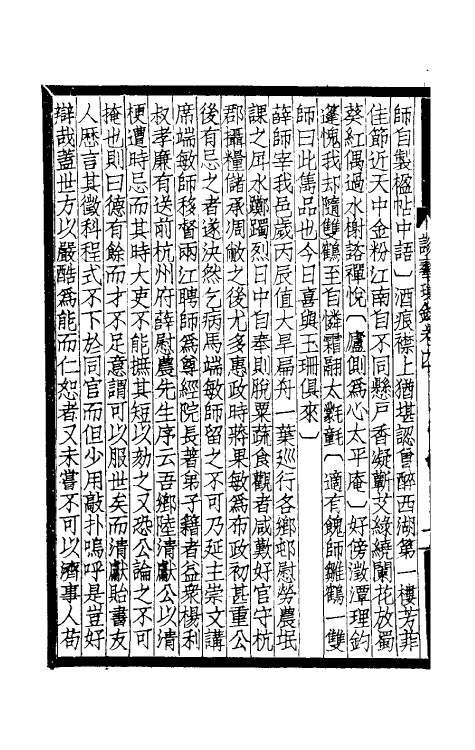 師自製楹帖中語〕酒痕襟上猶堪認曾醉西湖第一樓芳菲
佳節近天中金粉江南自不同懸戶香凝蘄艾綠繞闌花放蜀
葵紅偶過水榭諮禪悅〔廬側爲心太平庵〕好傍澂潭理釣
篷愧我却隨雙鶴至自憐霜翮太氋氃〔適有餽師雛鶴一雙
師曰此雋品也今日喜與玉珊俱來〕
薛師宰我邑歲丙辰值大旱扁舟一葉巡行各鄉邨慰勞農氓
課之戽水躑躅烈日中自奉則脫粟蔬食觀者咸歎好官守杭
郡攝糧儲承凋敝之後尤多惠政時蔣果敏爲布政初甚重公
後有忌之者遂決然乞病馬端敏師留之不可乃延主崇文講
席端敏師移督兩江聘師爲尊經院長著弟子籍者益衆楊利
叔孝廉有送前杭州府薛慰農先生序云吾鄉陸清獻公以清
便遭時忌而其時大吏不能摭其短以劾之又恐公論之不可
掩也則曰德有餘而才不足意謂可以服世矣而清獻貽書友
人歷言其徵科程式不下於同官而但少用敲扑嗚呼是豈好
辯哉蓋世方以嚴酷爲能而仁恕者又未嘗不可以濟事人苟